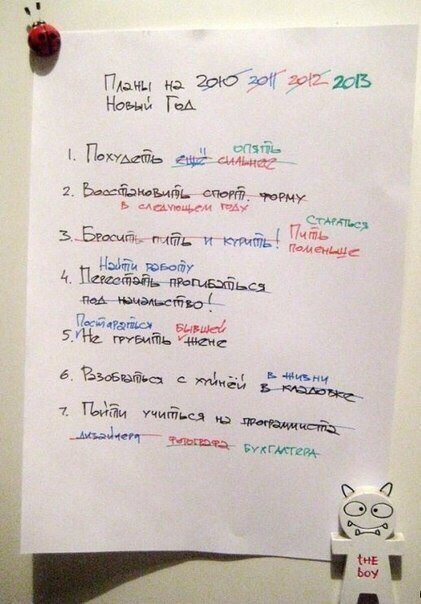 Планы на 2010 2011 2012 2013
Новый Год
опять
1. Похудеть ещё сильнее
2. Восстановить спорт. форму
в следующем году
Стараться
3. Бросить пить и курить! Пить
поменьше
Найти работу
4. Перестать прогибаться
под начальство!
Постараться бывшей
5. Не грубить жене
в жизни
6. Разобраться с хуйнёй в кладовке
7. Пойти учиться на программиста
дизайнера фотографа бухгалтера
the
boy